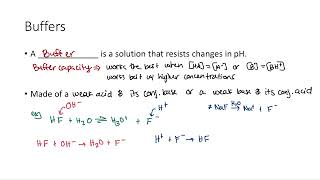 Buffers
• A Buffer is a solution that resists changes in pH.
Buffer capacity ⇒ works the best when [HA] = [A⁻] or [B] = [BH⁺]
works best w/ higher concentrations
• Made of a weak acid & its conj. base or a weak base & its conj. acid
OH⁻ H⁺ * NaF H₂O → Na⁺ + F⁻
ex) HF + H₂O ⇌ H₃O⁺ + F⁻
HF + OH⁻ → H₂O + F⁻ H⁺ + F⁻ → HF